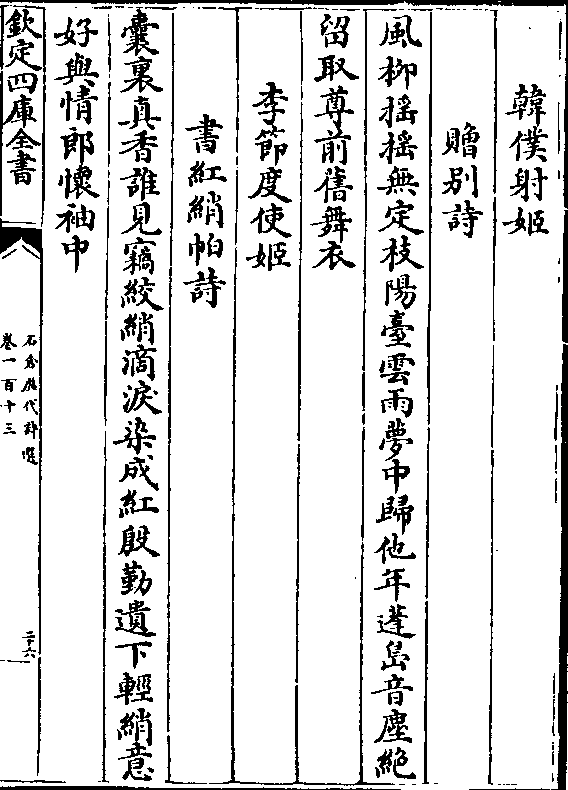 韓僕射姬
贈别詩
風柳揺揺無定枝陽臺雲雨夢中歸他年蓬島音塵絶
留取尊前舊舞衣
李節度使姬
書紅綃帕詩
囊裏真香誰見竊絞綃滴淚染成紅殷勤遺下輕綃意
好與情郎懷袖中
欽定四庫全書
石倉歷代詩選
卷一百十三
二十六